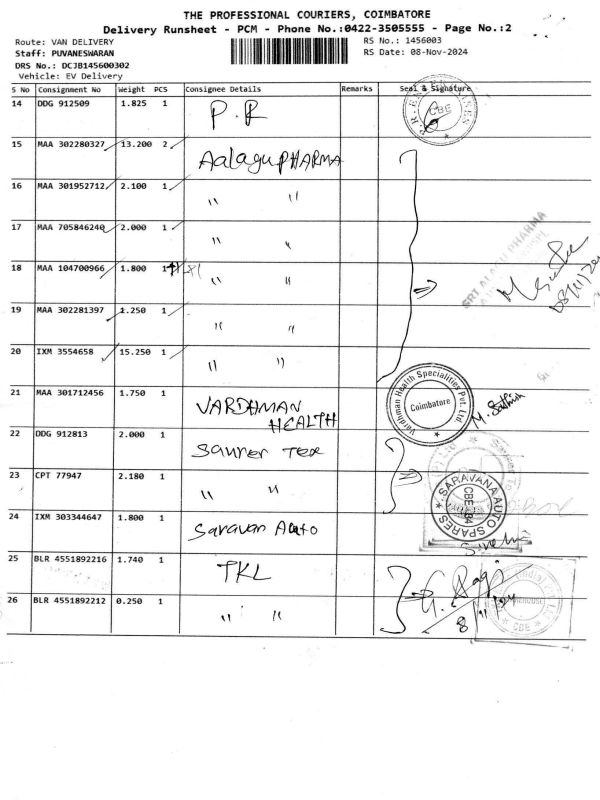 THE PROFESSIONAL COURIERS, COIMBATORE
Delivery Runsheet - PCM - Phone No.:0422-3505555 - Page No.:2
Route: VAN DELIVERY
RS No.: 1456003
Staff: PUVANESWARAN
RS Date: 08-Nov-2024
DRS No.: DCJB145600302
Vehicle: EV Delivery
S No Consignment No Weight PCS Consignee Details Remarks Seal & Signature
14 DDG 912509 1.825 1 P.R CBE
15 MAA 302280327 13.200 2 Aalagu PHARMA
16 MAA 301952712 2.100 1 " "
17 MAA 705846240 2.000 1 " "
SRI ALAGU PHARMA
18 MAA 104700966 1.800 1 " "
19 MAA 302281397 1.250 1 " "
20 IXM 3554658 15.250 1 " "
21 MAA 301712456 1.750 1 VARDHMAN HEALTH
Vardhman Health Specialities Pvt. Ltd. Coimbatore
M. Sathish
22 DDG 912813 2.000 1 Saurer Tex
23 CPT 77947 2.180 1 " "
SARAVANA AUTO SPARES
24 IXM 303344647 1.800 1 Saravan Auto
25 BLR 4551892216 1.740 1 TKL
26 BLR 4551892212 0.250 1 " "
CBE